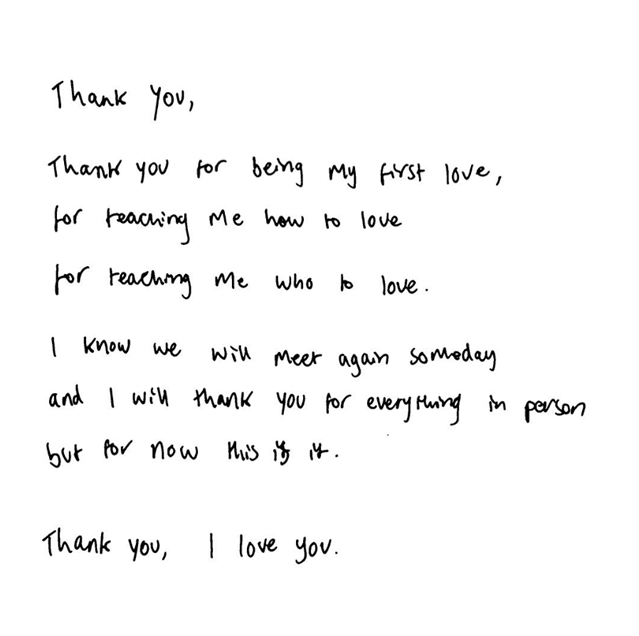 Thank you,
Thank you for being my first love,
for teaching me how to love
for teaching me who to love.
I know we will meet again someday
and I will thank you for everything in person
but for now this is it.
Thank you, I love you.